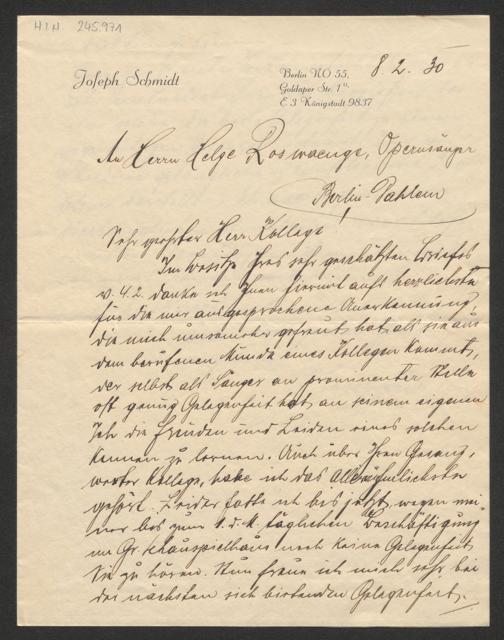 H.I.N. 245.971
Joseph Schmidt
Berlin NO 55,
Goldaper Str. 1
E 3 Königstadt 9837
8. 2. 30
An Herrn Helge Roswaenge, Opernsänger
Berlin-Dahlem
Sehr geehrter Herr Kollege!
Im Besitze Ihres sehr geschätzten Briefes
v. 4.2. danke ich Ihnen hiermit aufs herzlichste
für die mir ausgesprochene Anerkennung,
die mich umsomehr gefreut hat, als sie aus
dem berufenen Munde eines Kollegen kommt,
der selbst als Sänger an prominenter Stelle
oft genug Gelegenheit hat an seinem eigenen
Ich die Freuden und Leiden eines solchen
kennen zu lernen. Auch über Ihren Gesang,
werter Kollege, habe ich das Allerrühmlichste
gehört. Leider hatte ich bis jetzt, wegen mei-
ner bis zum 1. d. M. täglichen Beschäftigung
im Gr. Schauspielhaus noch keine Gelegenheit
Sie zu hören. Nun freue ich mich sehr bei
der nächsten sich bietenden Gelegenheit,